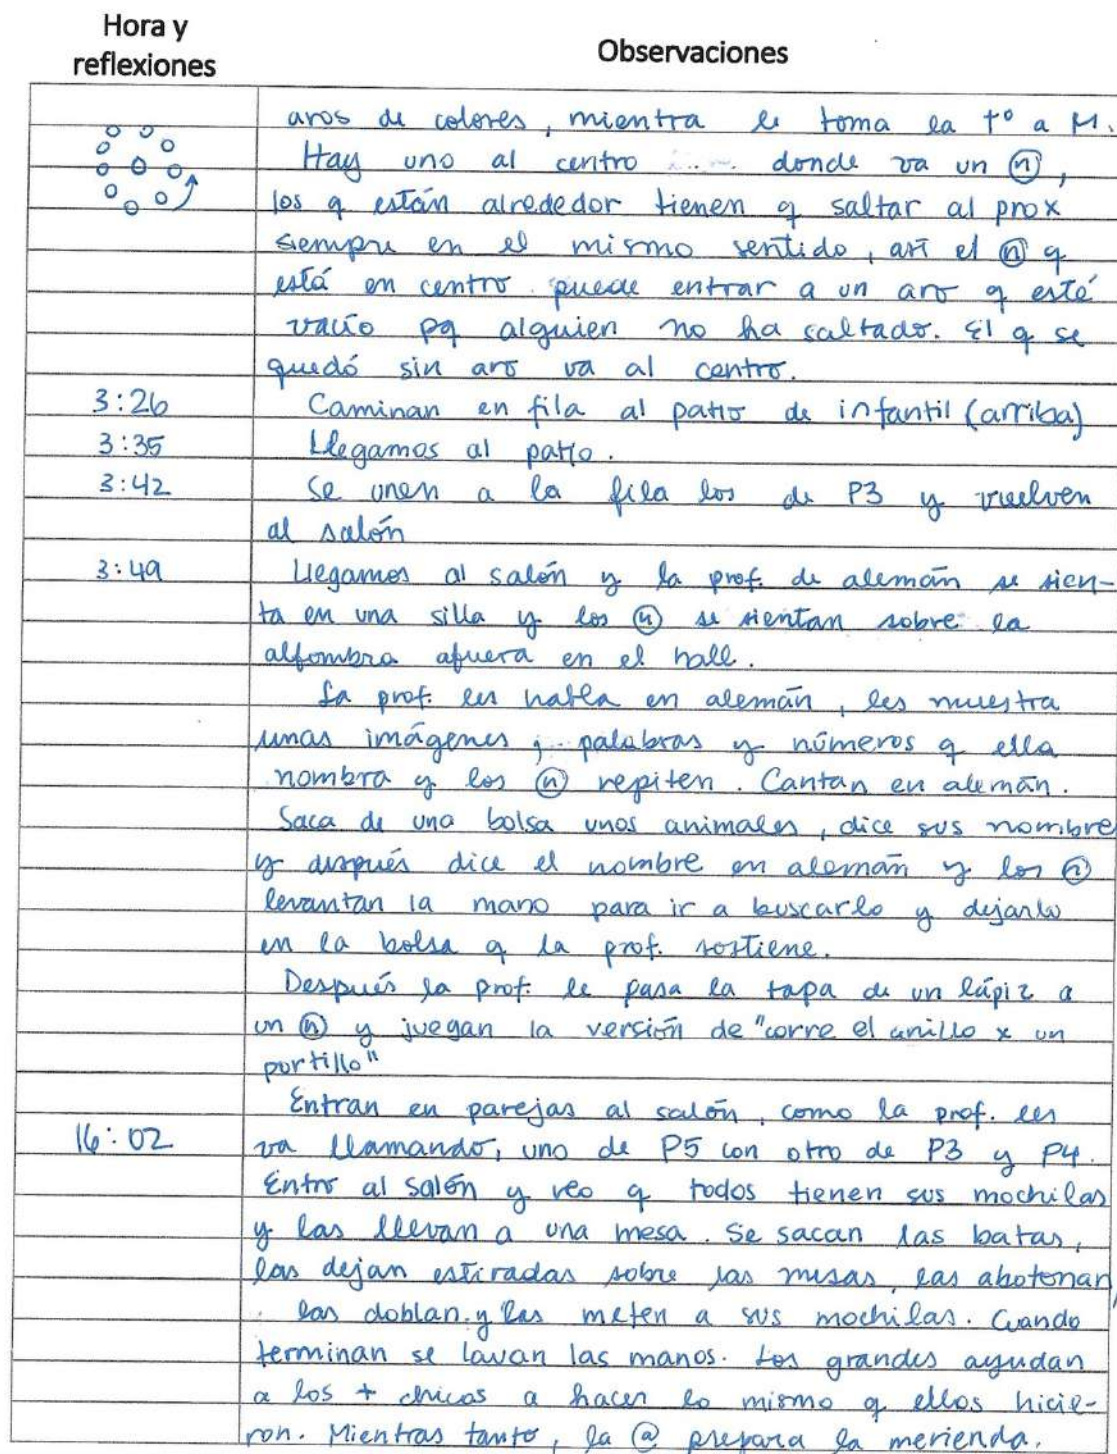 Hora y
reflexiones
Observaciones
aros de colores, mientra le toma la tº a M.
Hay uno al centro donde va un ⓝ,
los q están alrededor tienen q saltar al prox
siempre en el mismo sentido, así el ⓝ q
está en centro puede entrar a un aro q esté
vacío pq alguien no ha saltado. El q se
quedó sin aro va al centro.
3:26 Caminan en fila al patio de infantil (arriba)
3:35 Llegamos al patio.
3:42 Se unen a la fila los de P3 y vuelven
al salón
3:49 Llegamos al salón y la prof. de alemán se sien-
ta en una silla y los ⓝ se sientan sobre la
alfombra afuera en el hall.
La prof. les habla en alemán, les muestra
unas imágenes, palabras y números q ella
nombra y los ⓝ repiten. Cantan en alemán.
Saca de una bolsa unos animales, dice sus nombre
y después dice el nombre en alemán y los ⓝ
levantan la mano para ir a buscarlo y dejarlo
en la bolsa q la prof. sostiene.
Después la prof. le pasa la tapa de un lápiz a
un ⓝ y juegan la versión de "corre el anillo x un
portillo"
Entran en parejas al salón, como la prof. les
16:02 va llamando, uno de P5 con otro de P3 y P4.
Entro al salón y veo q todos tienen sus mochilas
y las llevan a una mesa. Se sacan las batas,
las dejan estiradas sobre las mesas, las abotonan,
las doblan y las meten a sus mochilas. Cuando
terminan se lavan las manos. Los grandes ayudan
a los + chicos a hacer lo mismo q ellos hicie-
ron. Mientras tanto, la @ prepara la merienda.